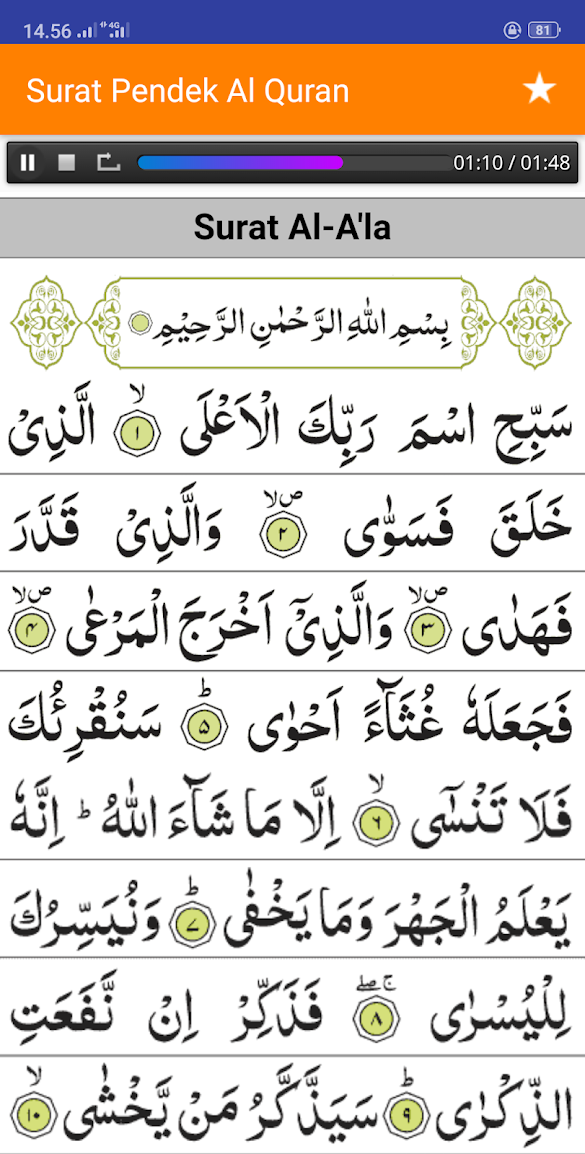 14.56 4G 81
Surat Pendek Al Quran
01:10 / 01:48
Surat Al-A'la
بِسْمِ اللّٰهِ الرَّحْمٰنِ الرَّحِيْمِ
سَبِّحِ اسْمَ رَبِّكَ الْاَعْلَى ۙ ١ الَّذِيْ
خَلَقَ فَسَوّٰى ۖۙ ٢ وَالَّذِيْ قَدَّرَ
فَهَدٰى ۖۙ ٣ وَالَّذِيْٓ اَخْرَجَ الْمَرْعٰى ۖۙ ۴
فَجَعَلَهٗ غُثَاۤءً اَحْوٰى ۗ ۵ سَنُقْرِئُكَ
فَلَا تَنْسٰٓى ۙ ٦ اِلَّا مَا شَاۤءَ اللّٰهُ ۗ اِنَّهٗ
يَعْلَمُ الْجَهْرَ وَمَا يَخْفٰى ۗ ٧ وَنُيَسِّرُكَ
لِلْيُسْرٰى ۖۚ ٨ فَذَكِّرْ اِنْ نَّفَعَتِ
الذِّكْرٰى ۗ ٩ سَيَذَّكَّرُ مَنْ يَّخْشٰى ۙ ١٠